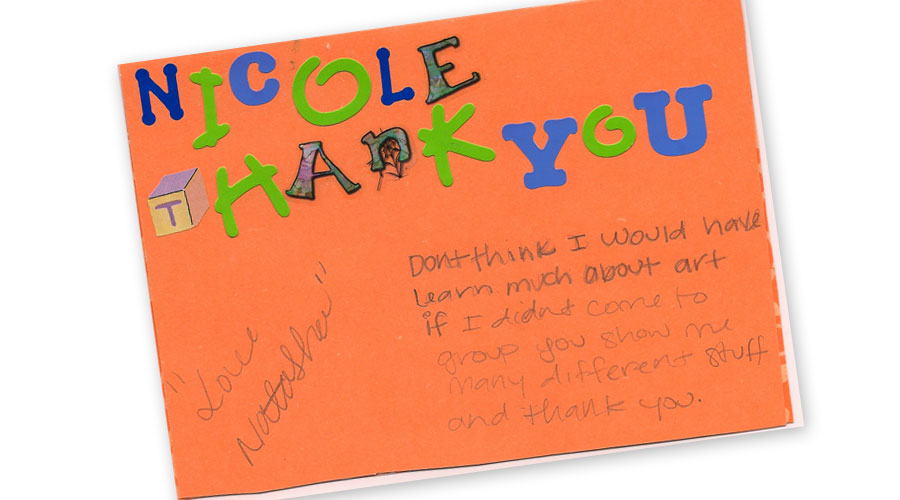 NICOLE
THANK YOU
Dont think I would have
learn much about art
if I didnt come to
group you show me
many different stuff
and thank you.
"Love
Natasha"